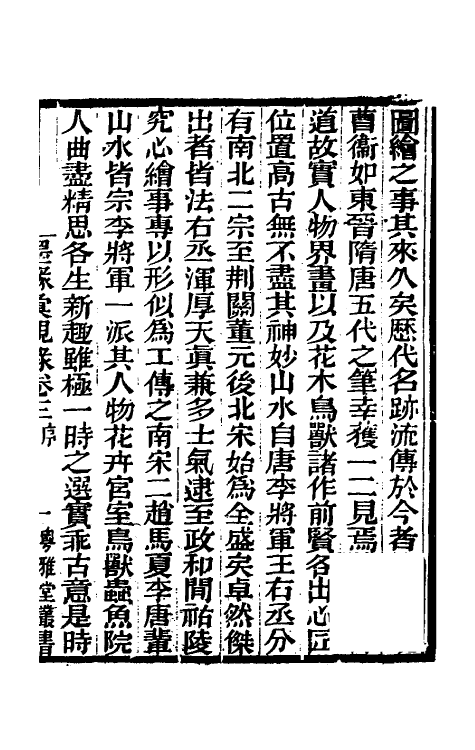 圖繪之事其來久矣歷代名跡流傳於今者
曹衞如東晉隋唐五代之筆幸獲一二見焉
道故實人物界畫以及花木鳥獸諸作前賢各出心匠
位置高古無不盡其神妙山水自唐李將軍王右丞分
有南北二宗至荆關董元後北宋始爲全盛矣卓然傑
出者皆法右丞渾厚天眞兼多士氣逮至政和間祐陵
究心繪事專以形似爲工傳之南宋二趙馬夏李唐輩
山水皆宗李將軍一派其人物花卉宫室鳥獸蟲魚院
人曲盡精思各生新趣雖極一時之選實乖古意是時
墨緣彙觀錄卷三序 一 粵雅堂叢書